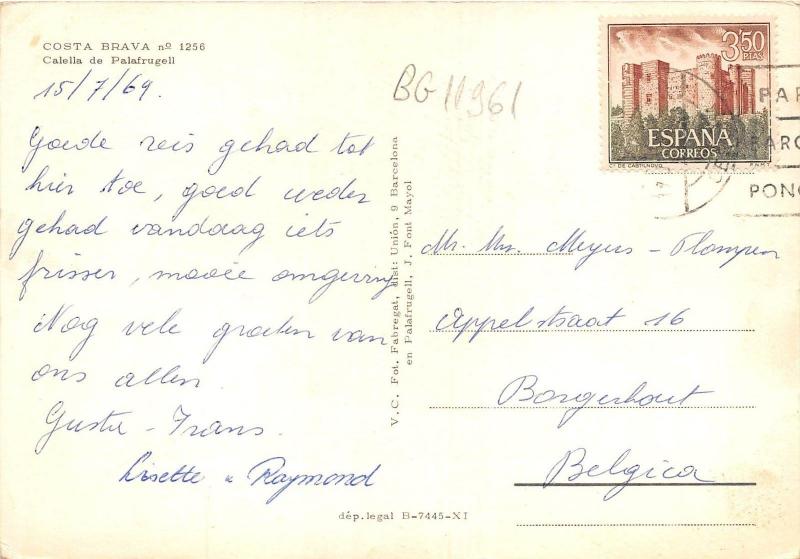 COSTA BRAVA nº 1256
Calella de Palafrugell
15/7/69.
Goede reis gehad tot
hier toe, goed weder
gehad vandaag iets
frisser, mooie omgeving
Nog vele groeten van
ons allen.
Guste - Frans.
Lisette & Raymond
dép. legal B-7445-XI
V. C. Fot. Fabregat, dist: Unión, 9 Barcelona
en Palafrugell, J. Font Mayol
BG 11961
3'50
PTAS
ESPAÑA
CORREOS
Cº DE CASTILNOVO
F.N.M.T.
PAR
PARC
PONG
Mr. Mw. Meyus - Plompen
Appelstraat 16
Borgerhout
Belgica